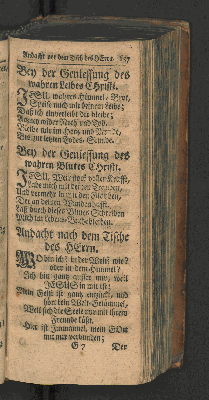 Andacht vor dem Tisch des HErrn. 157
Bey der Geniessung des
wahren Leibes CHristi.
JESU, wahres Himmel-Brot,
Speise mich mit deinem Leibe;
Daß ich einverleibt dir bleibe;
Rette mich aus Noth und Tod.
Bleibe mir im Hertz und Munde,
Biß zur letzten Todes-Stunde.
Bey der Geniessung des
wahren Blutes CHristi.
JESU, Weinstock voller Krafft,
Labe mich mit deinen Trauben,
Und vermehr in mir den Glauben,
Der an deinen Wunden hafft.
Laß durch dieses Blutes
Mich im Lebens-Buche bleiben.
Andacht nach dem Tische
des HErrn.
WO bin ich? in der Welt? wie?
oder in dem Himmel?
Ich bin gantz ausser mir, weil
JESUS in mir ist:
Mein Geist ist gantz entzückt, und
hört kein Welt-Getümmel,
Weil sich die Seele nur mit ihrem
Freunde küßt.
Hier ist Immanuel, mein GOtt
mit mir verbunden;
G 7 Der